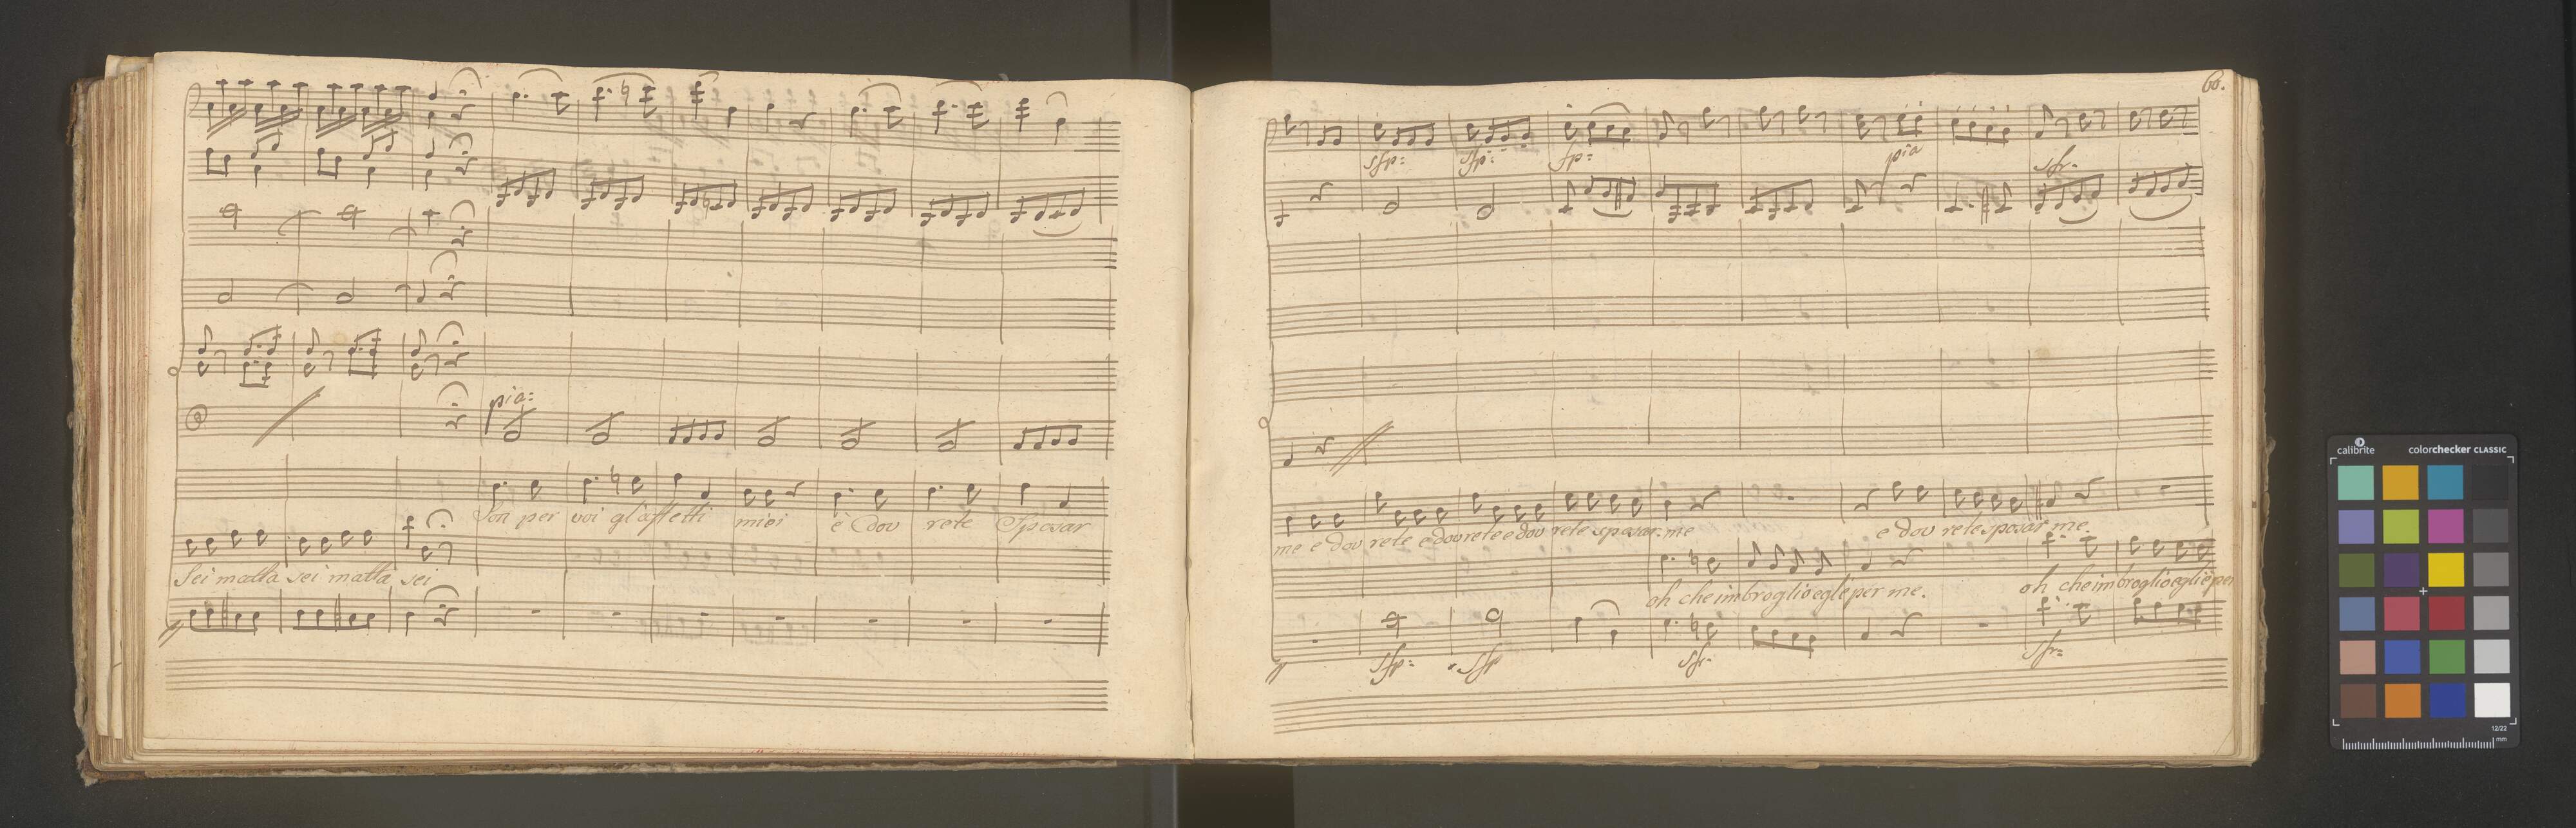 pia:
Son per voi gl'affetti miei è dov rete Sposar
Sei matta sei matta sei
60.
sfp: sfp: fp: pia sfr.
me e dov rete e dov rete e dov rete sposar me e dov rete sposar me.
oh che imbroglio egl'è per me. oh che imbroglio egliè per
sfp: sfp sfr. sfr:
calibrite colorchecker CLASSIC
12/22
mm